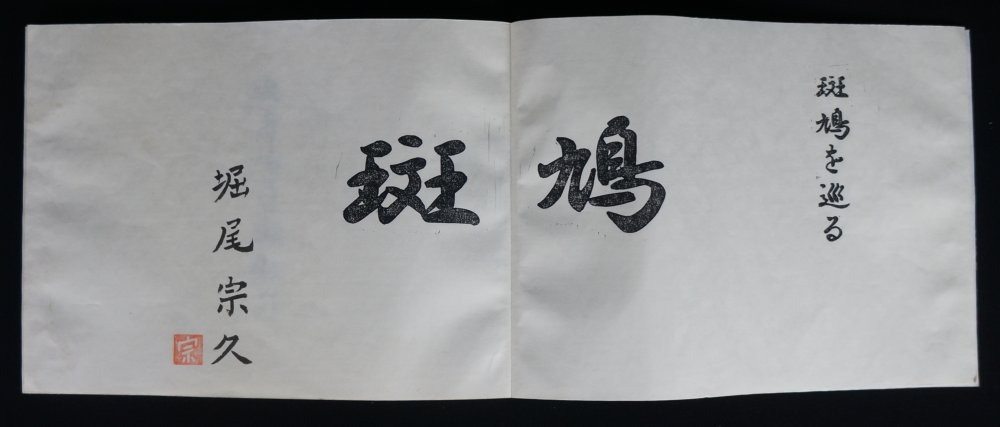 斑鳩を巡る
斑鳩
堀尾宗久
宗